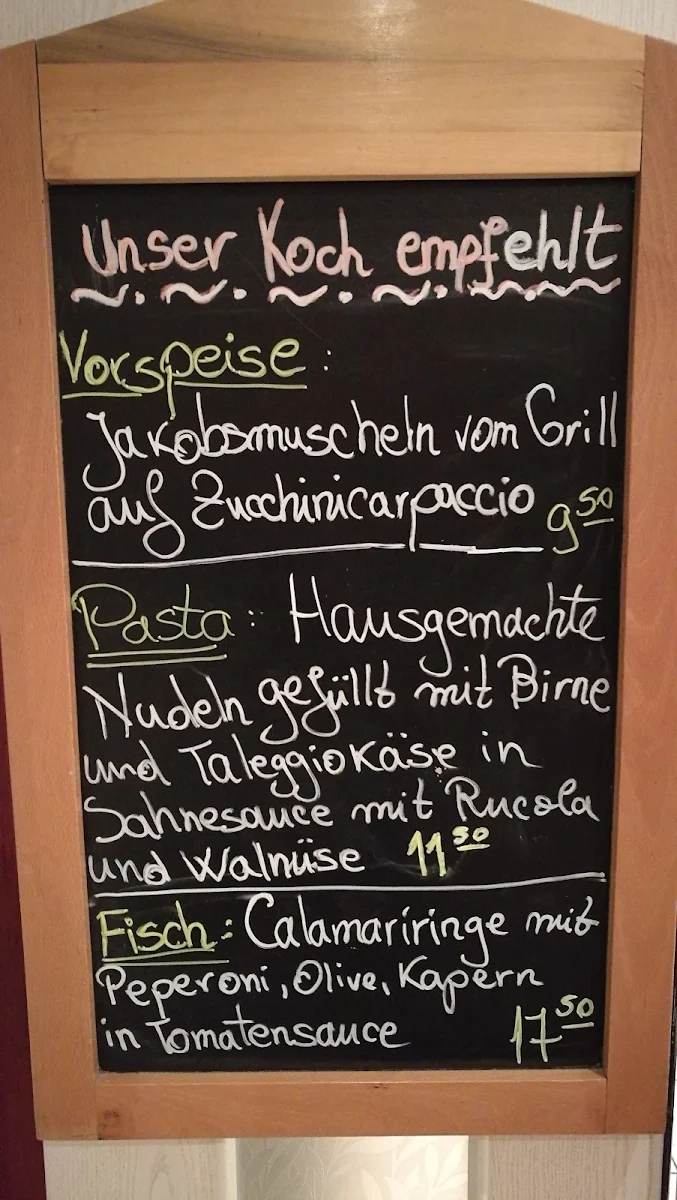 Unser Koch empfehlt
Vorspeise:
Jakobsmuscheln vom Grill
auf Zucchinicarpaccio 9 50
Pasta: Hausgemachte
Nudeln gefüllt mit Birne
und Taleggiokäse in
Sahnesauce mit Rucola
und Walnüse 11 50
Fisch: Calamariringe mit
Peperoni, Olive, Kapern
in Tomatensauce 17 50